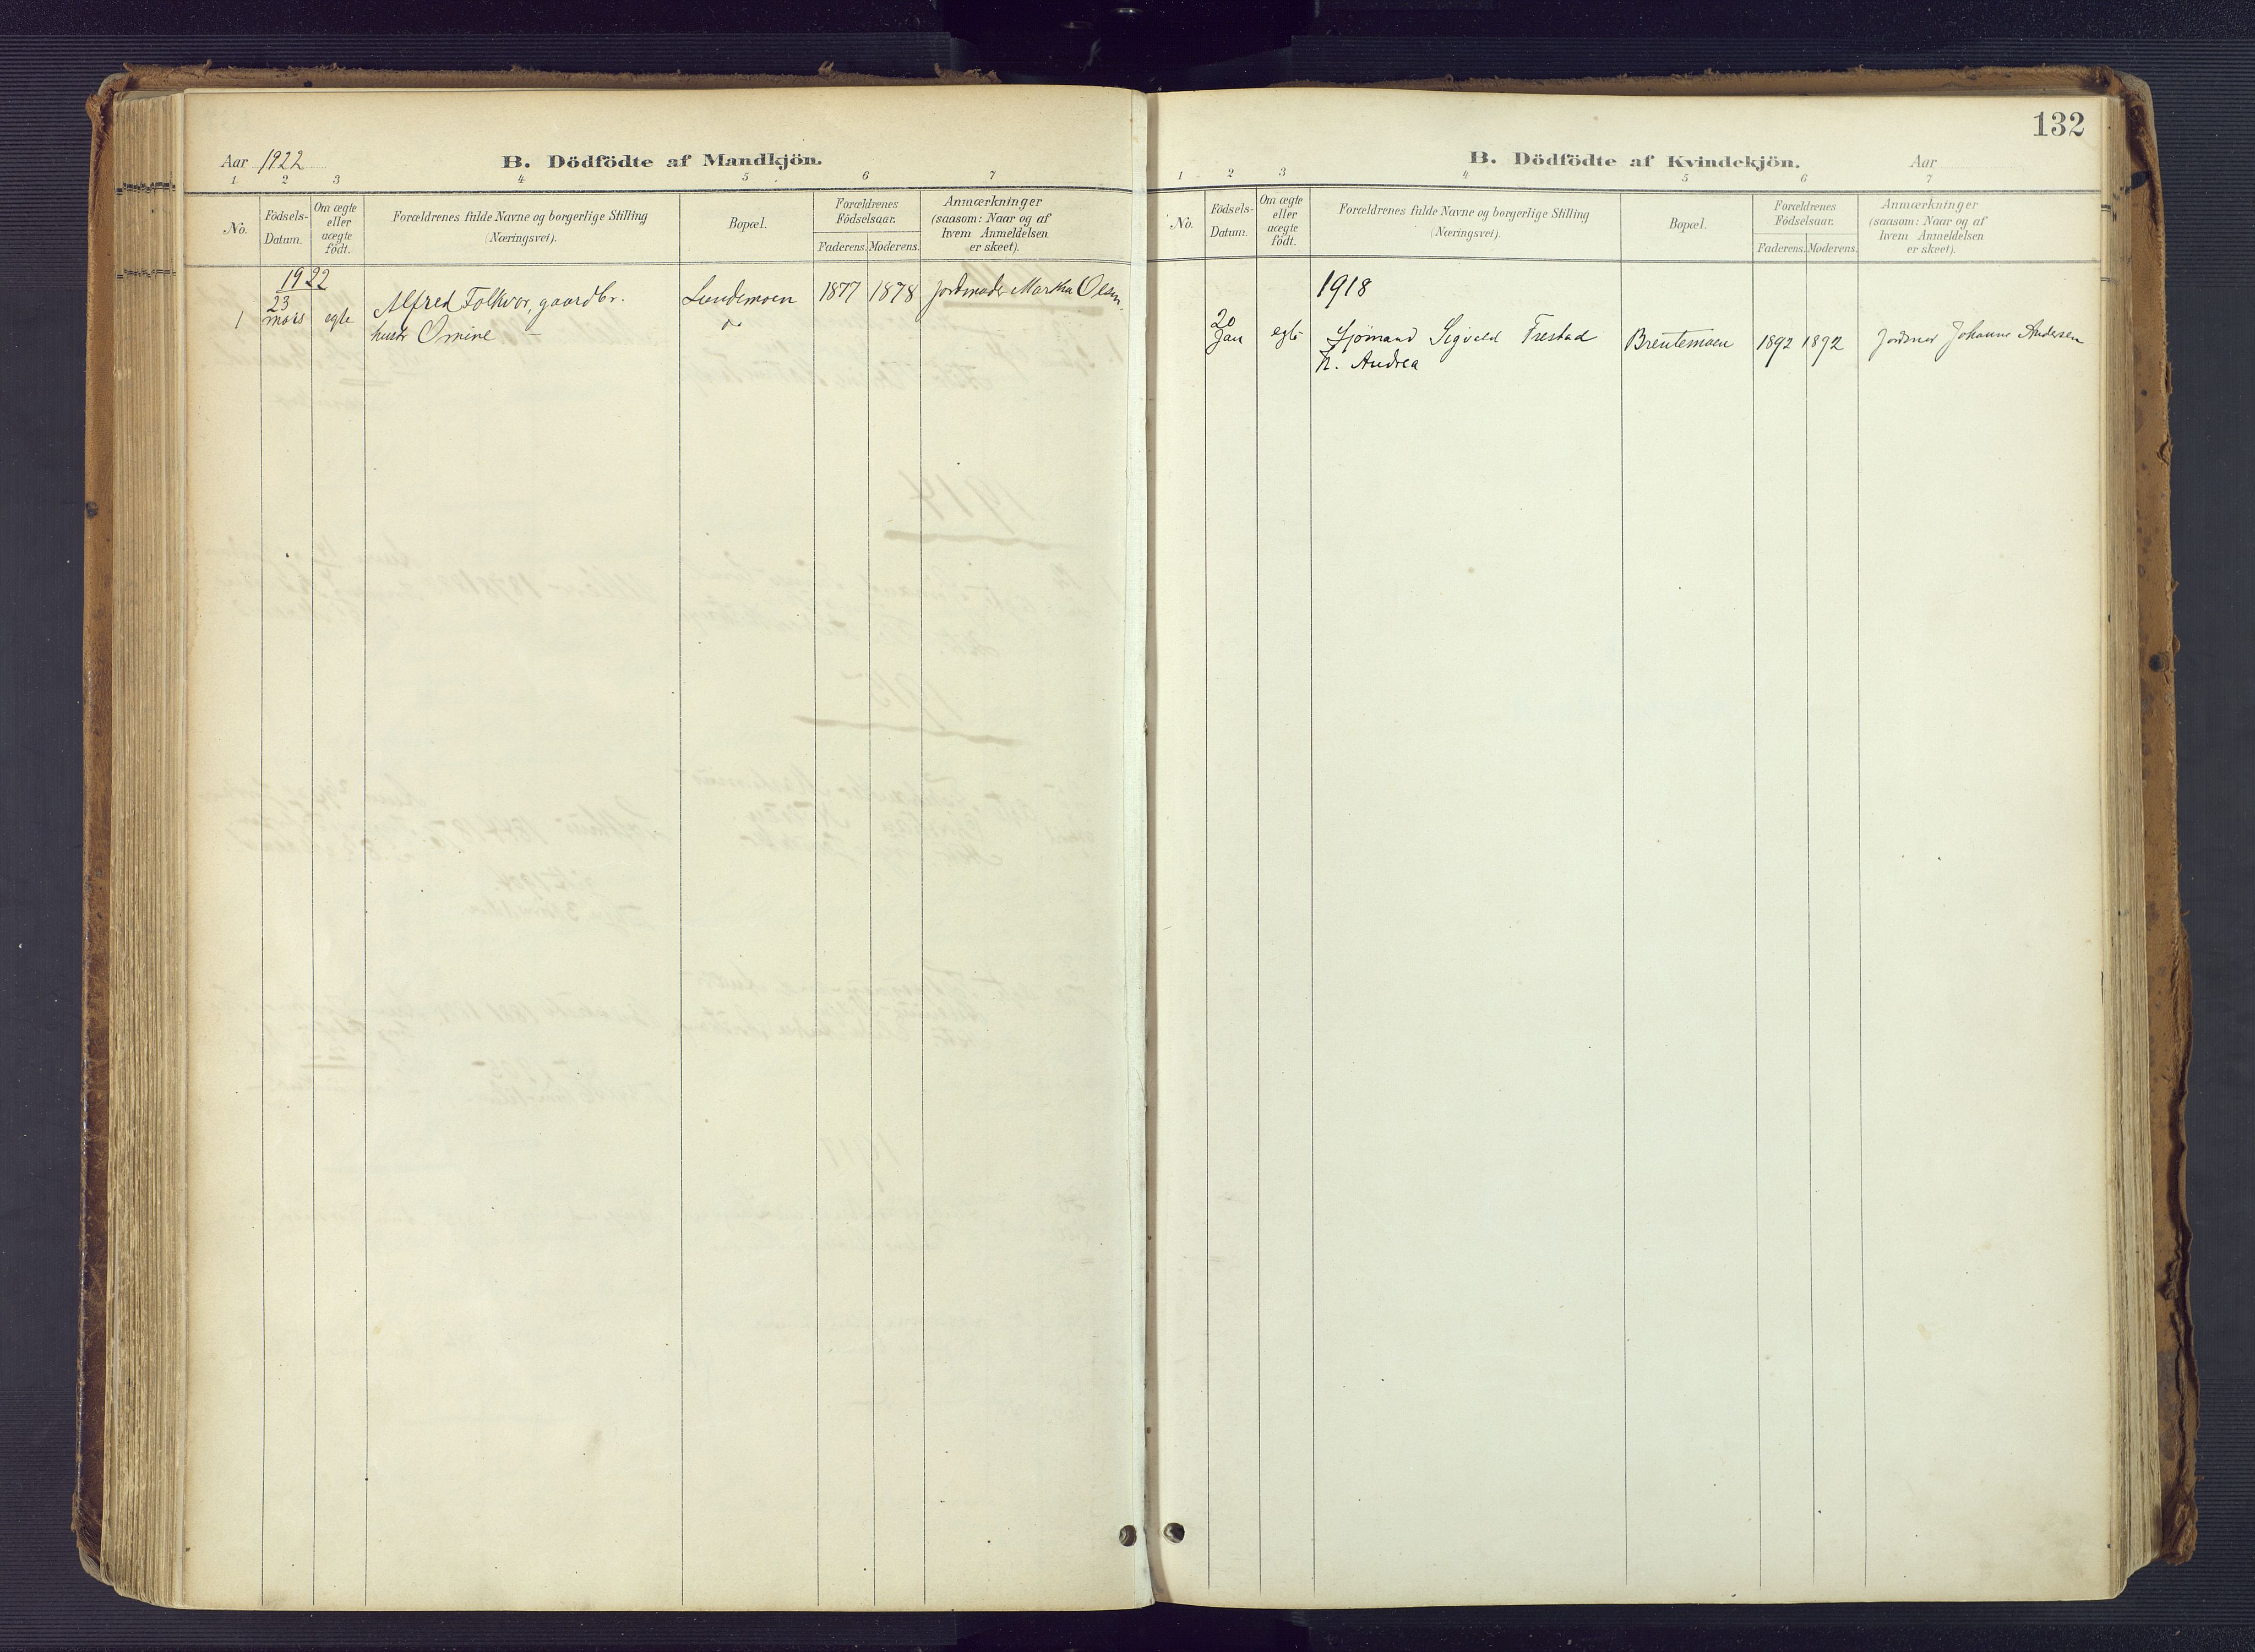 Aar 1922
B. Dödfödte af Mandkjön.
1 2 3 4 5 6 7
No.
Födsels-
Datum.
Om ægte
eller
uægte
födt.
Forældrenes fulde Navne og borgerlige Stilling
(Næringsvei).
Bopæl.
Forældrenes
Födselsaar.
Faderens. Moderens.
Anmærkninger
(saasom: Naar og af
hvem Anmeldelsen
er skeet).
1922
1 23 mars egte Alfred Folkvor, gaardbr. Lundemoen 1877 1878 Jordmoder Martha Olsen
hustr Omine
132
B. Dödfödte af Kvindekjön.
Aar
1 2 3 4 5 6 7
No.
Födsels-
Datum.
Om ægte
eller
uægte
födt.
Forældrenes fulde Navne og borgerlige Stilling
(Næringsvei).
Bopæl.
Forældrenes
Födselsaar.
Faderens. Moderens.
Anmærkninger
(saasom: Naar og af
hvem Anmeldelsen
er skeet).
1918
20 Jan egte Sjömand Sigvald Frestad Brentemoen 1892 1892 Jordmor Johanne Andersen
h. Andrea